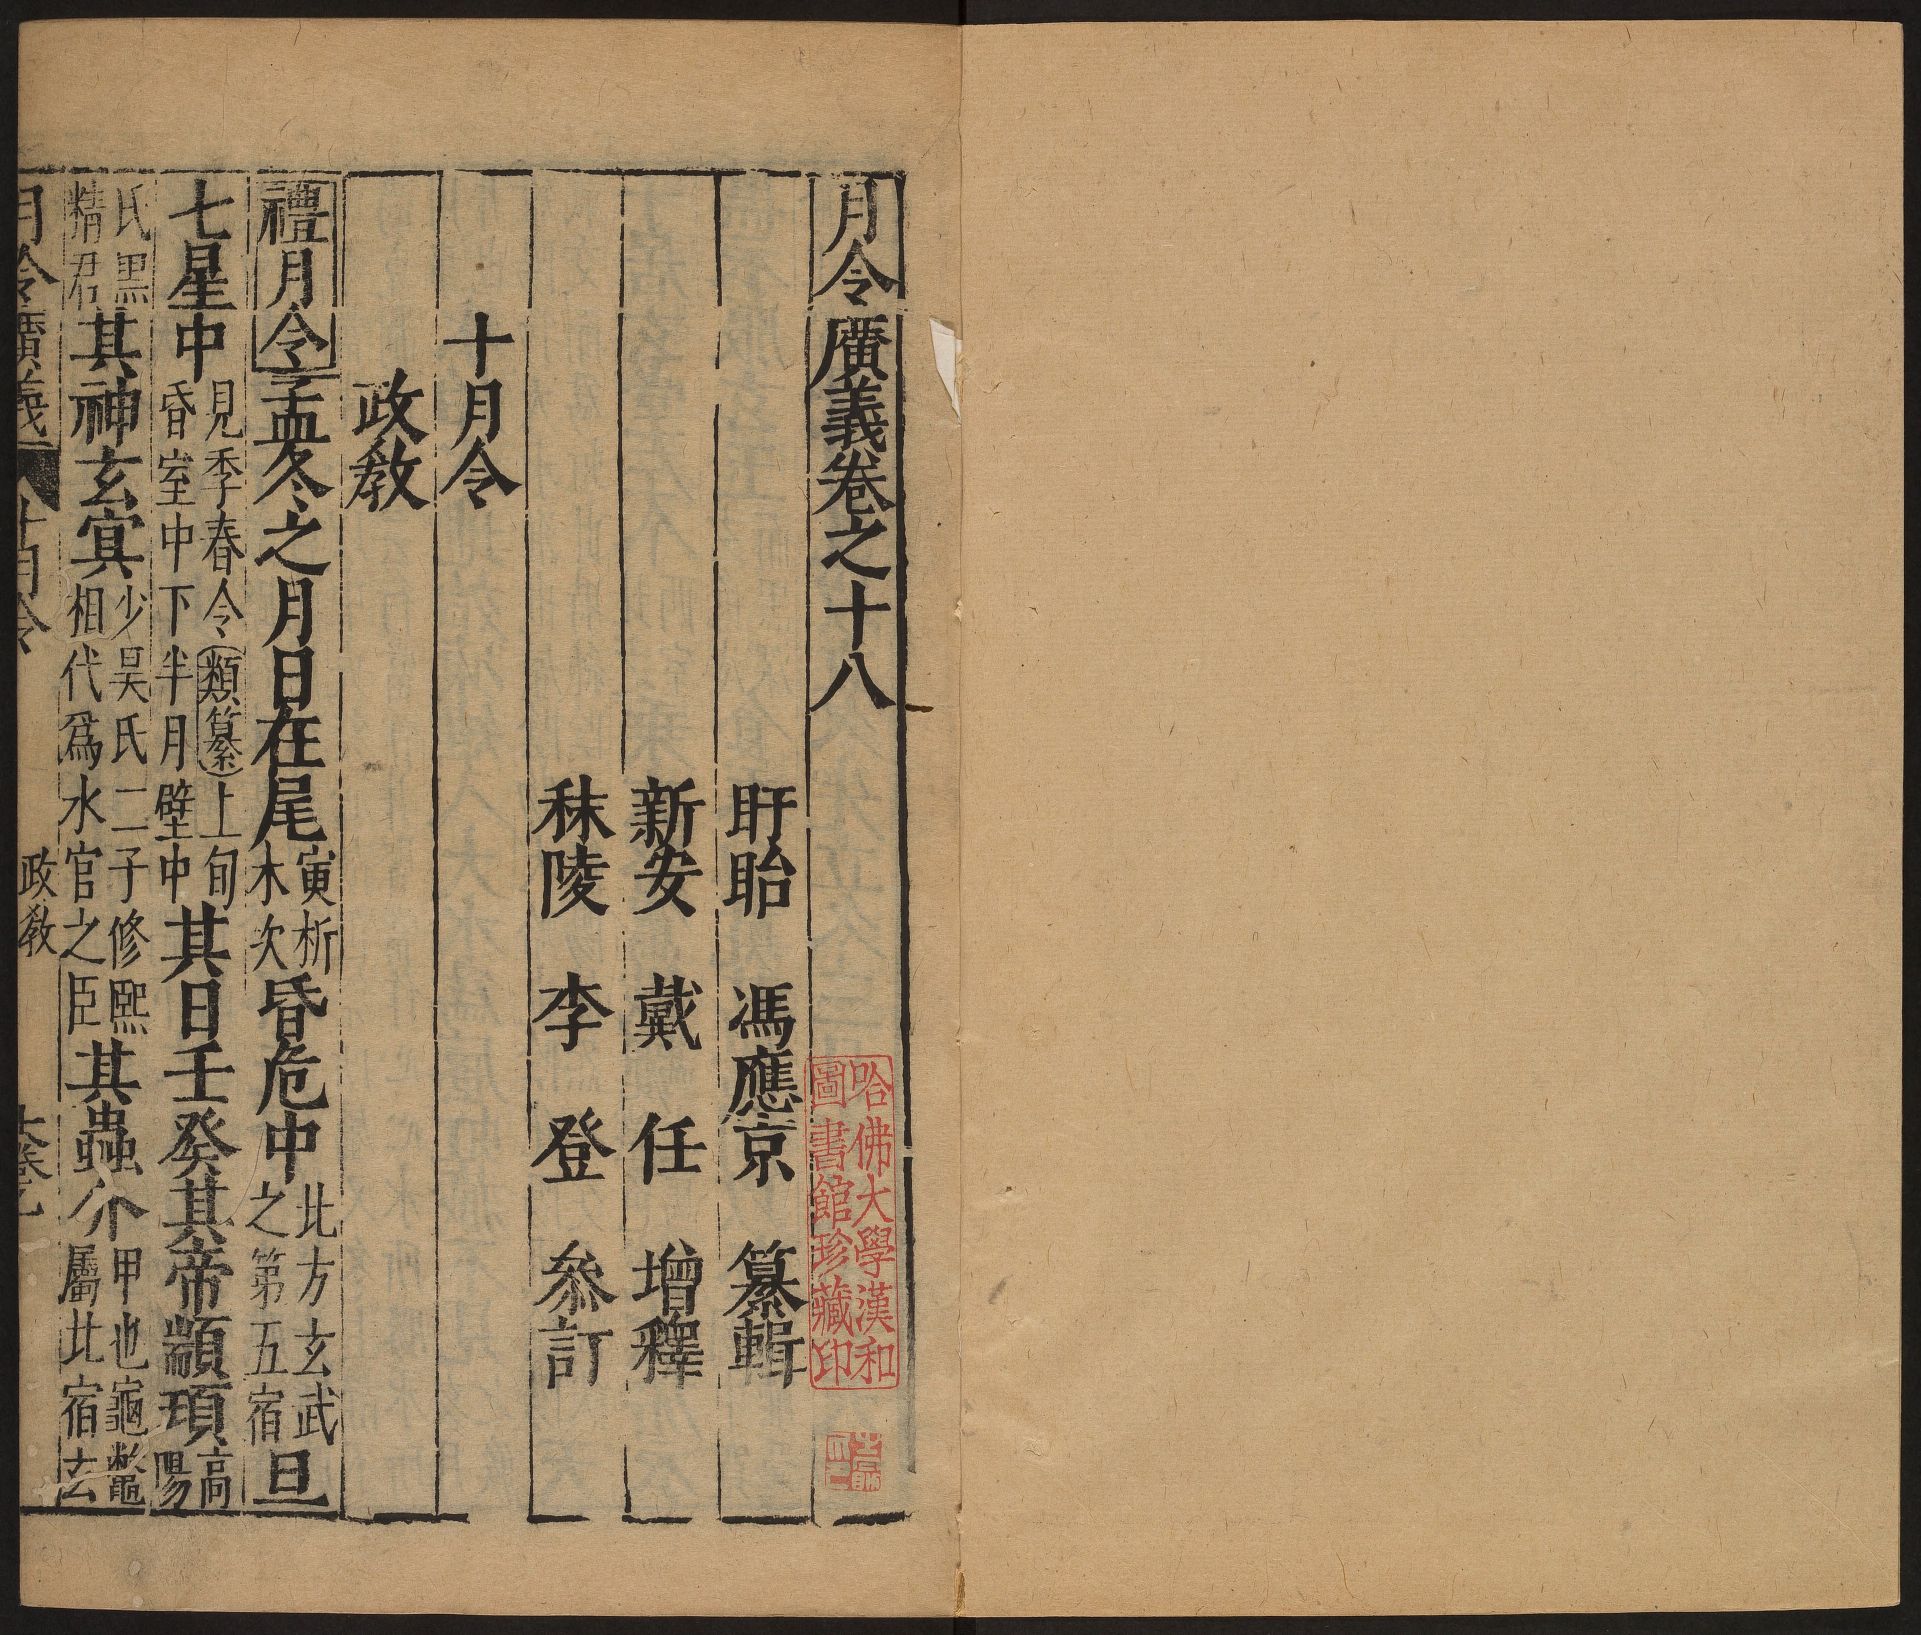 月令廣義卷之十八
盱眙　馮應京　纂輯
新安　戴　任　增釋
秣陵　李　登　叅訂
十月令
政教
禮月令孟冬之月日在尾寅析木次昏危中北方玄武之第五宿旦
七星中見季春令類纂上旬昏室中下半月壁中其日壬癸其帝顓頊高陽
氏黑精君其神玄冥少昊氏二子修熙相代爲水官之臣其蟲介甲也龜鼈屬北宿玄
月令廣義
十月令
政教
哈佛大學漢和
圖書館珍藏印